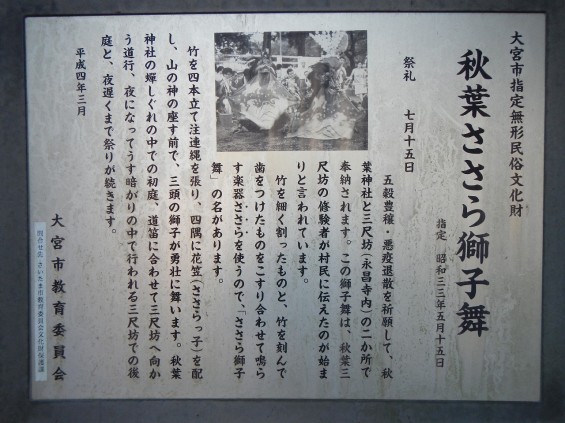 大宮市指定無形民俗文化財
秋葉ささら獅子舞
指定 昭和三三年五月十五日
祭礼 七月十五日
五穀豊穣・悪疫退散を祈願して、秋
葉神社と三尺坊(永昌寺内)の二か所で
奉納されます。この獅子舞は、秋葉三
尺坊の修験者が村民に伝えたのが始ま
りと言われています。
竹を細く割ったものと、竹を刻んで
歯をつけたものをこすり合わせて鳴ら
す楽器ささらを使うので、「ささら獅子
舞」の名があります。
竹を四本立て注連縄を張り、四隅に花笠(ささらっ子)を配
し、山の神の座す前で、三頭の獅子が勇壮に舞います。秋葉
神社の蟬しぐれの中での初庭、道笛に合わせて三尺坊へ向か
う道行、夜になってうす暗がりの中で行われる三尺坊での後
庭と、夜遅くまで祭りが続きます。
平成四年三月
大宮市教育委員会
問合せ先 さいたま市教育委員会文化財保護課